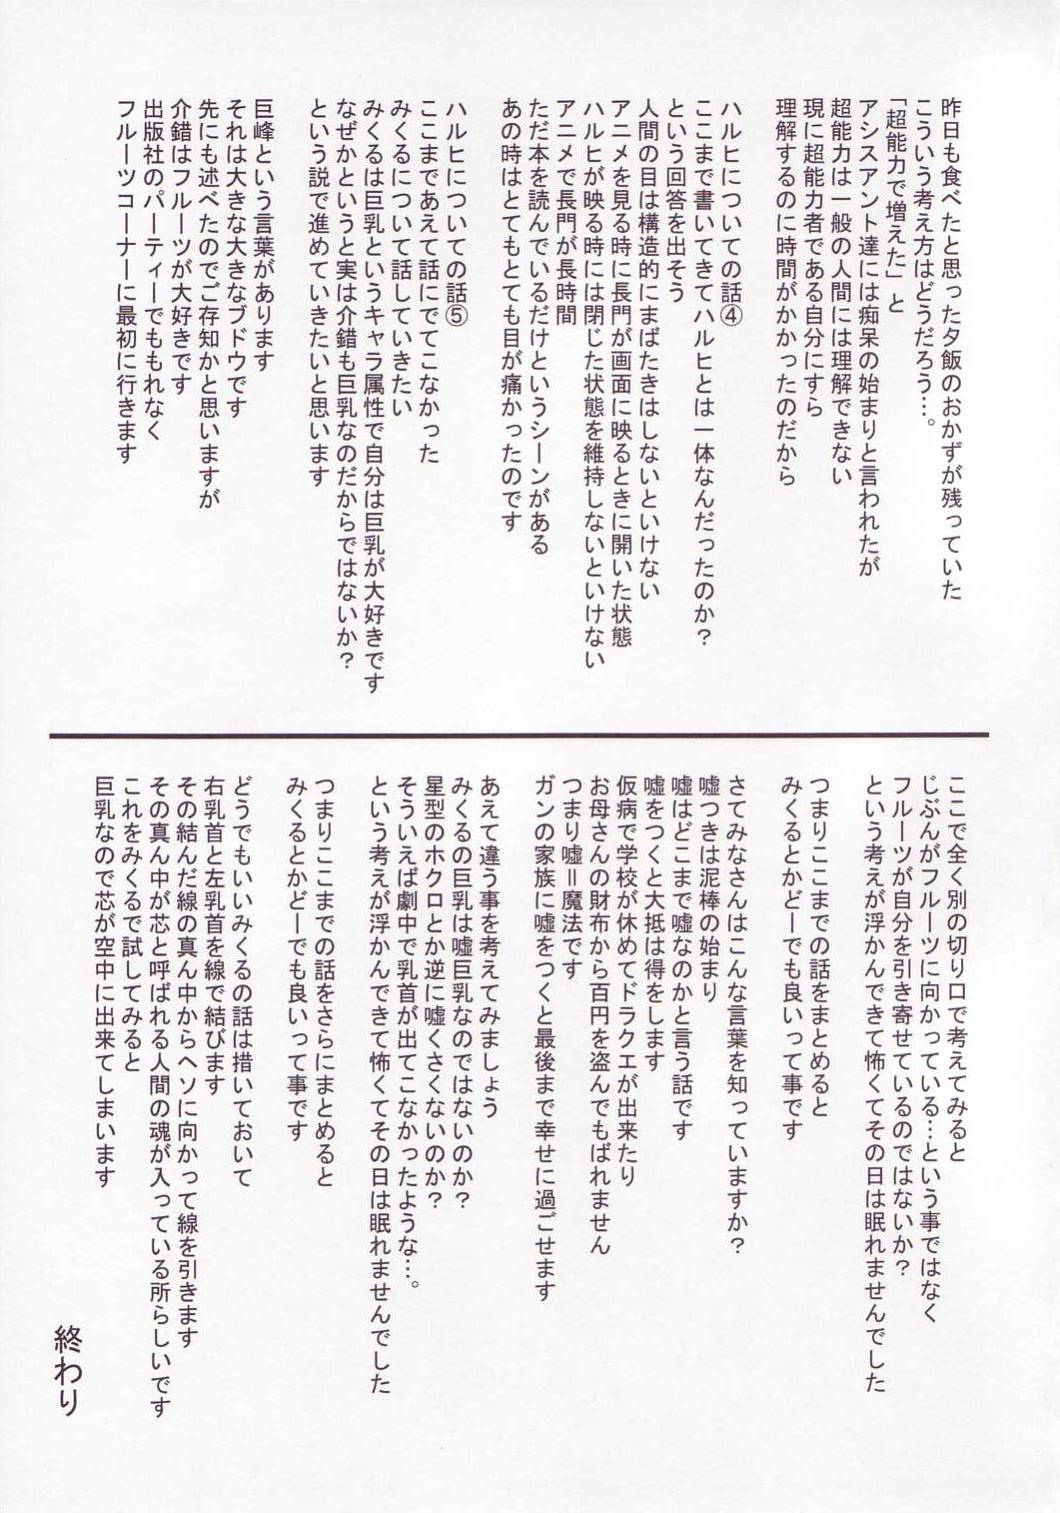 昨日も食べたと思った夕飯のおかずが残っていた
こういう考え方はどうだろう…。
「超能力で増えた」と
アシスアント達には痴呆の始まりと言われたが
超能力は一般の人間には理解できない
現に超能力者である自分にすら
理解するのに時間がかかったのだから
ハルヒについての話④
ここまで書いてきてハルヒとは一体なんだったのか?
という回答を出そう
人間の目は構造的にまばたきはしないといけない
アニメを見る時に長門が画面に映るときに開いた状態
ハルヒが映る時には閉じた状態を維持しないといけない
アニメで長門が長時間
ただ本を読んでいるだけというシーンがある
あの時はとてもとても目が痛かったのです
ハルヒについての話⑤
ここまであえて話にでてこなかった
みくるについて話していきたい
みくるは巨乳というキャラ属性で自分は巨乳が大好きです
なぜかというと実は介錯も巨乳なのだからではないか?
という説で進めていきたいと思います
巨峰という言葉があります
それは大きな大きなブドウです
先にも述べたのでご存知かと思いますが
介錯はフルーツが大好きです
出版社のパーティーでももれなく
フルーツコーナーに最初に行きます
ここで全く別の切り口で考えてみると
じぶんがフルーツに向かっている…という事ではなく
フルーツが自分を引き寄せているのではないか?
という考えが浮かんできて怖くてその日は眠れませんでした
つまりここまでの話をまとめると
みくるとかどーでも良いって事です
さてみなさんはこんな言葉を知っていますか?
嘘つきは泥棒の始まり
嘘はどこまで嘘なのかと言う話です
嘘をつくと大抵は得をします
仮病で学校が休めてドラクエが出来たり
お母さんの財布から百円を盗んでもばれません
つまり嘘=魔法です
ガンの家族に嘘をつくと最後まで幸せに過ごせます
あえて違う事を考えてみましょう
みくるの巨乳は嘘巨乳なのではないのか?
星型のホクロとか逆に嘘くさくないのか?
そういえば劇中で乳首が出てこなかったような…。
という考えが浮かんできて怖くてその日は眠れませんでした
つまりここまでの話をさらにまとめると
みくるとかどーでも良いって事です
どうでもいいみくるの話は措いておいて
右乳首と左乳首を線で結びます
その結んだ線の真ん中からヘソに向かって線を引きます
その真ん中が芯と呼ばれる人間の魂が入っている所らしいです
これをみくるで試してみると
巨乳なので芯が空中に出来てしまいます
終わり